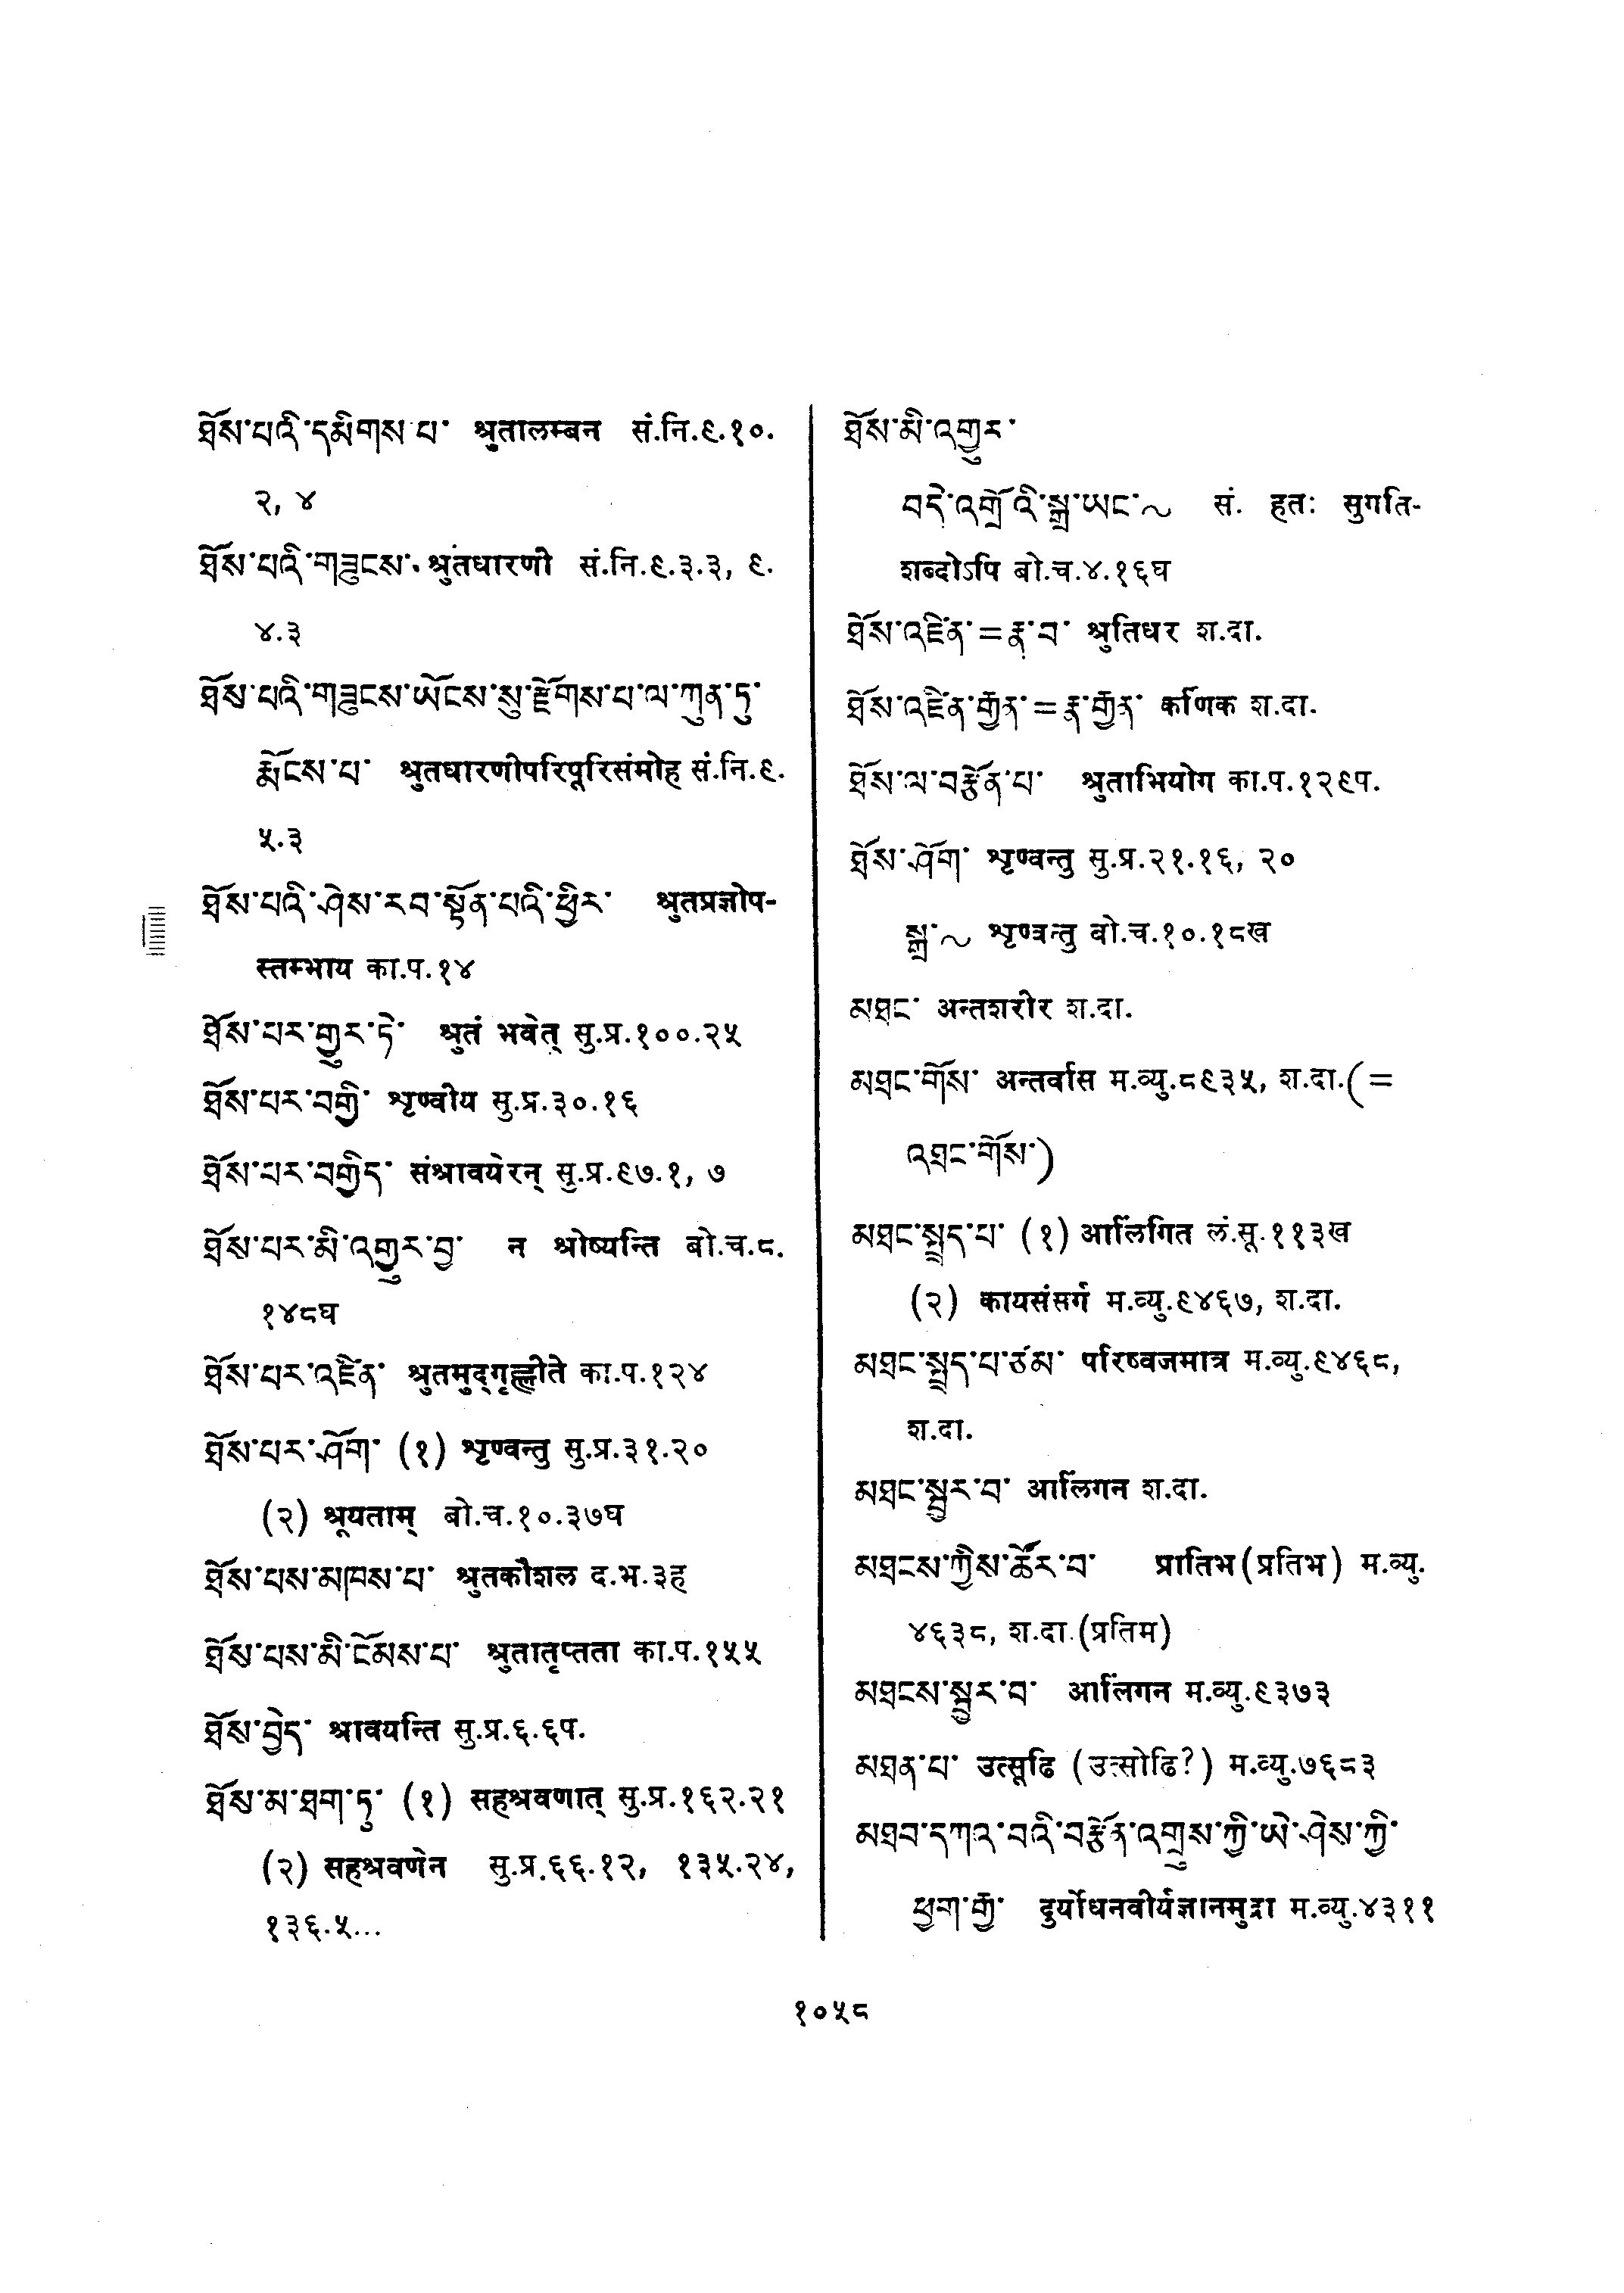 ཐོས་པའི་དམིགས་པ་ श्रुतालम्बन सं.नि.९.१०.
२, ४
ཐོས་པའི་གཟུངས་ श्रुतधारणी सं.नि.९.३.३, ९.
४.३
ཐོས་པའི་གཟུངས་ཡོངས་སུ་རྫོགས་པ་ལ་ཀུན་ཏུ་
རྨོངས་པ་ श्रुतधारणीपरिपूरिसंमोह सं.नि.९.
५.३
ཐོས་པའི་ཤེས་རབ་སྟོན་པའི་ཕྱིར་ श्रुतप्रज्ञोप-
स्तम्भाय का.प.१४
ཐོས་པར་གྱུར་ཏེ་ श्रुतं भवेत् सु.प्र.१००.२५
ཐོས་པར་བགྱི་ शृण्वीय सु.प्र.३०.१६
ཐོས་པར་བགྱིད་ संश्रावयेरन् सु.प्र.९७.१, ७
ཐོས་པར་མི་འགྱུར་བྱ་ न श्रोष्यन्ति बो.च.८.
१४८घ
ཐོས་པར་འཛིན་ श्रुतमुद्गृह्णीते का.प.१२४
ཐོས་པར་ཤོག་ (१) शृण्वन्तु सु.प्र.३१.२०
(२) श्रूयताम् बो.च.१०.३७घ
ཐོས་པས་མཁས་པ་ श्रुतकौशल द.भ.३ह
ཐོས་པས་མི་ངོམས་པ་ श्रुतातृप्तता का.प.१५५
ཐོས་བྱེད་ श्रावयन्ति सु.प्र.६.६प.
ཐོས་མ་ཐག་ཏུ་ (१) सहश्रवणात् सु.प्र.१६२.२१
(२) सहश्रवणेन सु.प्र.६६.१२, १३५.२४,
१३६.५...
ཐོས་མི་འགྱུར་
བདེ་འགྲོའི་སྒྲ་ཡང་~ सं. हतः सुगति-
शब्दोऽपि बो.च.४.१६घ
ཐོས་འཛིན་=རྣ་བ་ श्रुतिधर श.दा.
ཐོས་འཛིན་རྒྱན་=རྣ་རྒྱན་ कर्णिक श.दा.
ཐོས་ལ་བརྩོན་པ་ श्रुताभियोग का.प.१२९प.
ཐོས་ཤོག་ शृण्वन्तु सु.प्र.२१.१६, २०
སྒྲ་~ शृण्वन्तु बो.च.१०.१८ख
མཐང་ अन्तशरीर श.दा.
མཐང་གོས་ अन्तर्वास म.व्यु.८९३५, श.दा.(=
འཐང་གོས་)
མཐང་སྤྲད་པ་ (१) आलिंगित लं.सू.११३ख
(२) कायसंसर्ग म.व्यु.९४६७, श.दा.
མཐང་སྤྲད་པ་ཙམ་ परिष्वजमात्र म.व्यु.९४६८,
श.दा.
མཐང་སྦྱར་བ་ आलिंगन श.दा.
མཐངས་ཀྱིས་ཚོར་བ་ प्रातिभ(प्रतिभ) म.व्यु.
४६३८, श.दा.(प्रतिम)
མཐངས་སྦྱར་བ་ आलिंगन म.व्यु.९३७३
མཐན་པ་ उत्सूढि (उत्सोढि?) म.व्यु.७६८३
མཐབ་དཀའ་བའི་བརྩོན་འགྲུས་ཀྱི་ཡེ་ཤེས་ཀྱི་
ཕྱག་རྒྱ་ दुर्योधनवीर्यज्ञानमुद्रा म.व्यु.४३११
१०५८